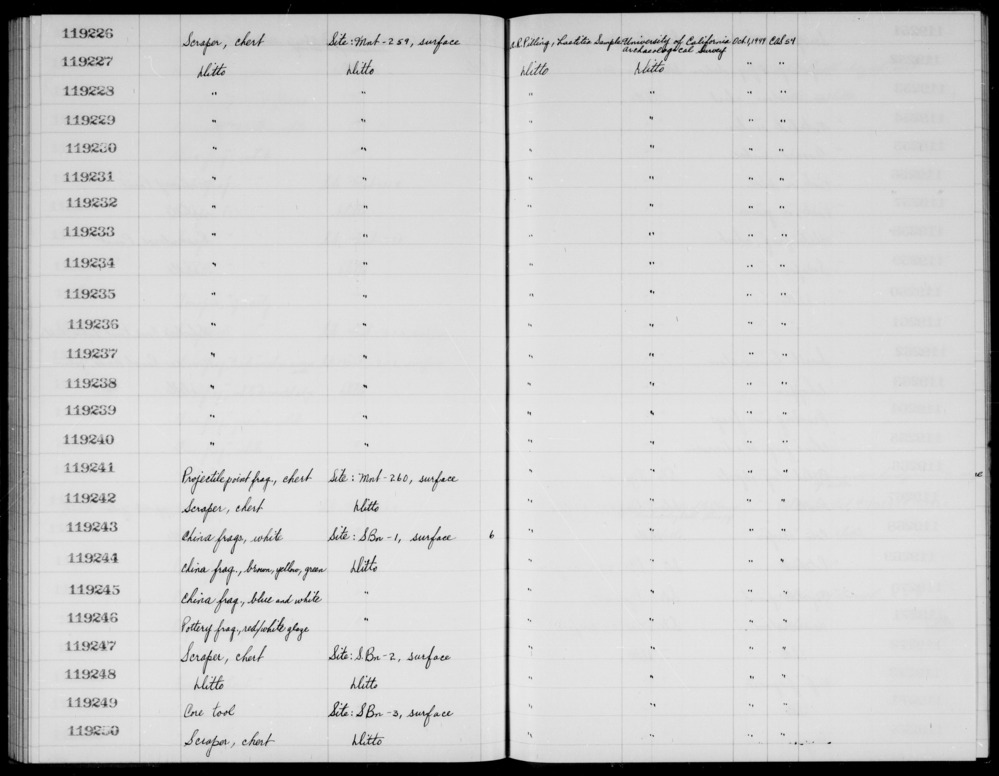 119226 Scraper, chert Site: Mnt-259, surface A.R. Pilling, Laetitia Sample University of California Archaeological Survey Oct 1, 1949 Cal 54
119227 Ditto Ditto Ditto Ditto " "
119228 " " " " " "
119229 " " " " " "
119230 " " " " " "
119231 " " " " " "
119232 " " " " " "
119233 " " " " " "
119234 " " " " " "
119235 " " " " " "
119236 " " " " " "
119237 " " " " " "
119238 " " " " " "
119239 " " " " " "
119240 " " " " " "
119241 Projectile point frag., chert Site: Mnt-260, surface " " " "
119242 Scraper, chert Ditto " " " "
119243 China frags, white Site: SBn-1, surface 6 " " " "
119244 China frag., brown, yellow, green Ditto " " " "
119245 China frag., blue and white " " " " "
119246 Pottery frag., red/white glaze " " " " "
119247 Scraper, chert Site: SBn-2, surface " " " "
119248 Ditto Ditto " " " "
119249 Core tool Site: SBn-3, surface " " " "
119250 Scraper, chert Ditto " " " "